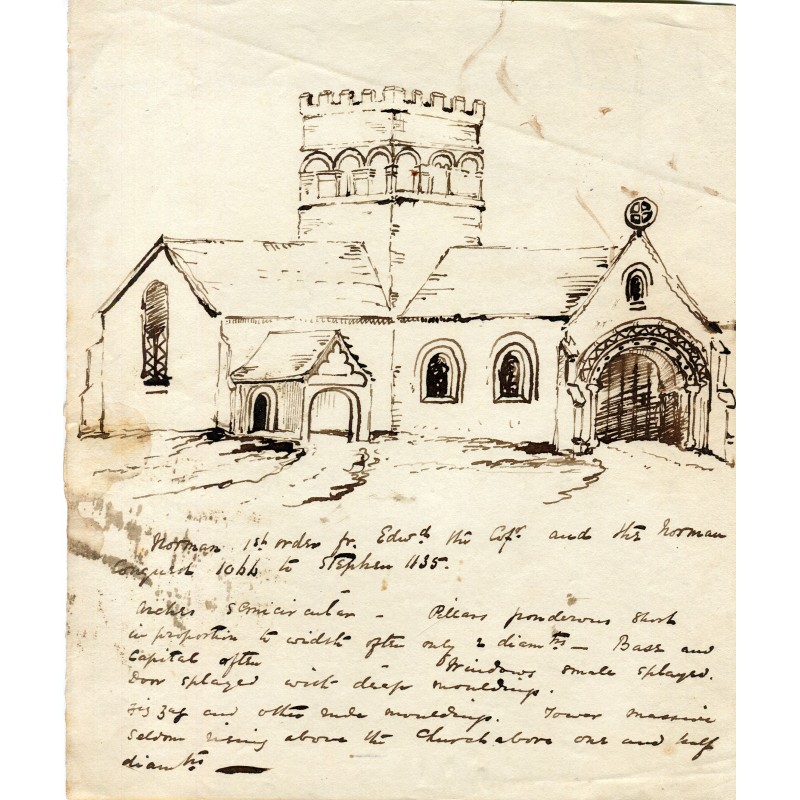 Norman 1st order fr. Edwd the Cofr and the Norman
Conquest 1066 to Stephen 1135.
Arches semicircular - Pillars ponderous short
in proportion to width often only 2 diamtrs - Base and
Capital often Windows small splayed.
Door splayed with deep mouldings.
zig zag and other rude mouldings. Tower massive
seldom rising above the Church above one and half
diamtrs